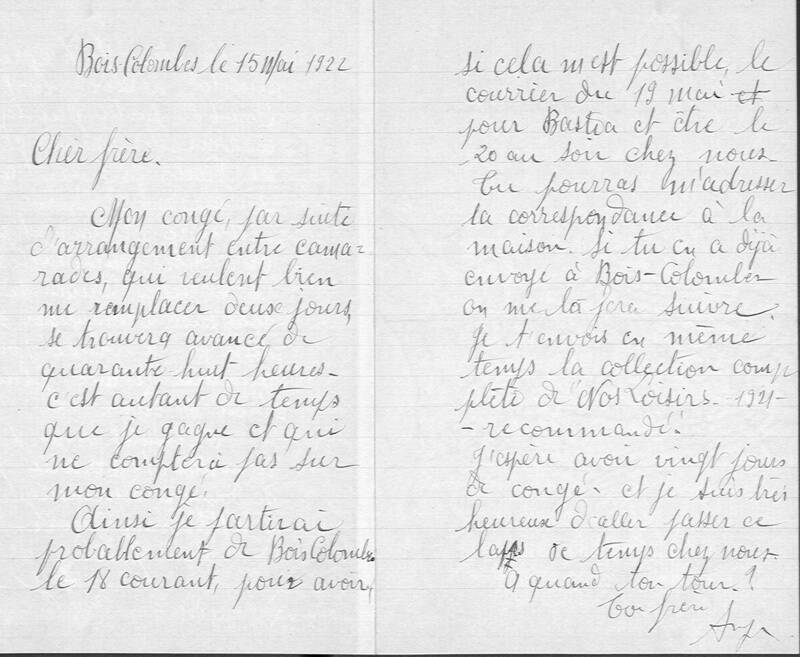 Bois-Colombes le 15 Mai 1922
Cher frère.
Mon congé, par suite
d'arrangement entre cama=
rades, qui veulent bien
me remplacer deux jours,
se trouvera avancé de
quarante huit heures-
c'est autant de temps
que je gagne et qui
ne comptera pas sur
mon congé.
Ainsi je partirai
probablement de Bois Colombes
le 18 courant, pour avoir,
si cela m'est possible, le
courrier du 19 mai et
pour Bastia et être le
20 au soir chez nous.
Tu pourras m'adresser
ta correspondance à la
maison. Si tu en a déjà
envoyé à Bois-Colombes
on me la fera suivre.
Je t'envois en même
temps la collection com
plète de "Nos Loisirs - 1921-
- recommandé"
J'espère avoir vingt jours
de congé - et je suis très
heureux d'aller passer ce
laps de temps chez nous.
A quand ton tour.?
Ton frère